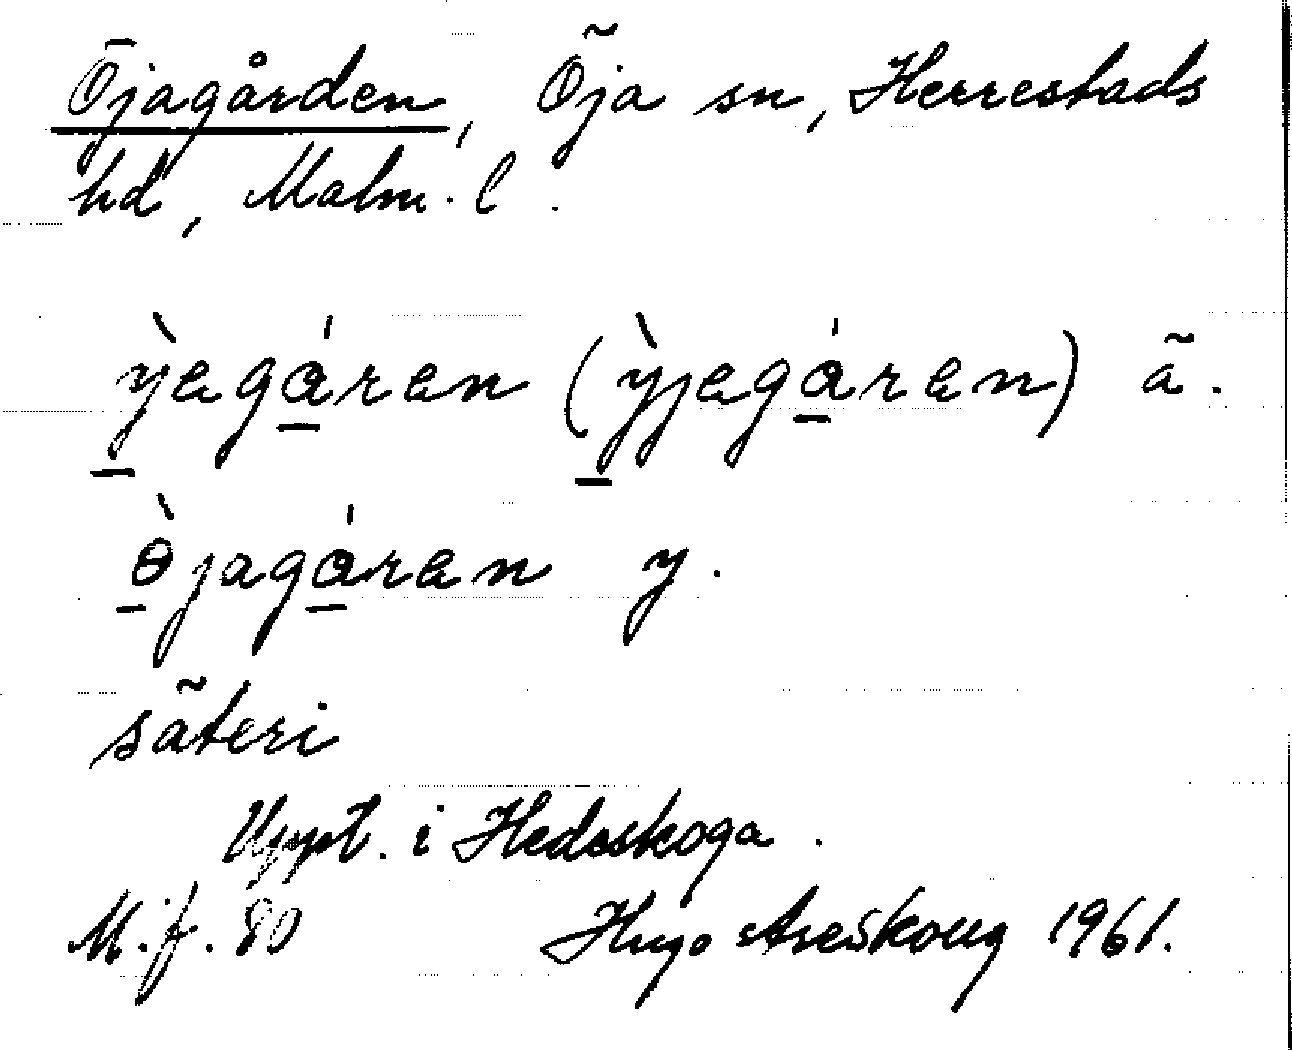 Öjagården, Öja sn, Herrestads
hd, Malm. l.
ỳ̲egá̲ren (ỳ̲jegá̲ren) ä.
ò̲jagá̲ren y.
säteri
Uppt. i Hedeskoga.
M.f. 80 Hugo Areskoug 1961.